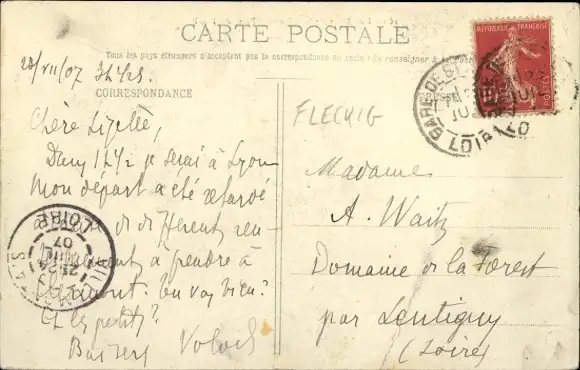 CARTE POSTALE
Tous les pays étrangers n'acceptent pas la correspondance au recto (Se renseigner à la Poste)
CORRESPONDANCE
28/VII/07 3h 1/2 s.
Chère Lizette,
Dans 1 h 1/2 je serai à Lyon
Mon départ a été retardé
de différents ren-
à prendre à
Ça va bien?
Et les petits?
Baisers
FLECHIG
Madame
A. Waitz
Domaine de la Forest
par Lentigny
(Loire)
REPUBLIQUE FRANÇAISE
10
POSTES
GARE DE
LOIRE
LOIRE
07